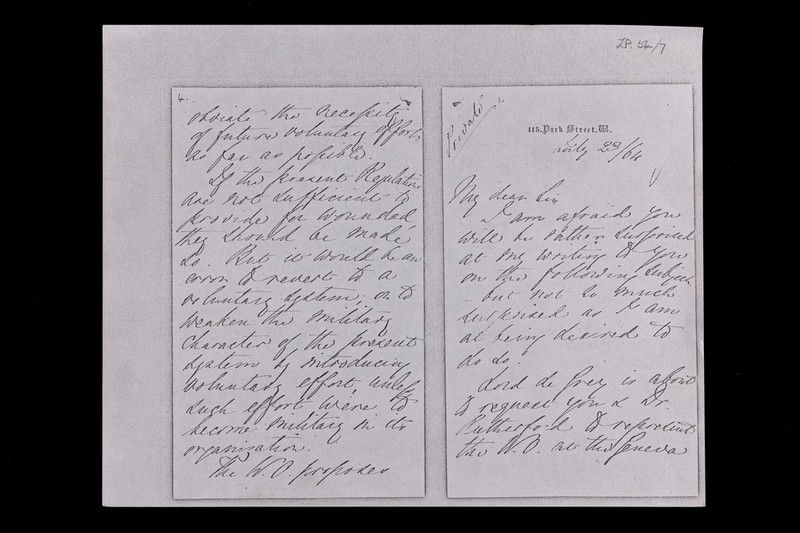 LP. 54/7
4.
obviate the necessity
of future voluntary efforts
as far as possible.
If the present Regulations
are not sufficient to
provide for wounded
they should be made
so. But it would be an
error to revert to a
voluntary system; or to
weaken the military
character of the present
system by introducing
voluntary effort, unless
such effort were to
become military in its
organisation.
The W.O. proposes
Private
115. Park Street. W.
July 23/64
My dear Sir
I am afraid you
will be rather surprised
at my writing to you
on the following subject
- but not so much
surprised as I am
at being desired to
do so.
Lord de Grey is about
to request you & Dr.
Rutherford to represent
the W.O. at the Geneva